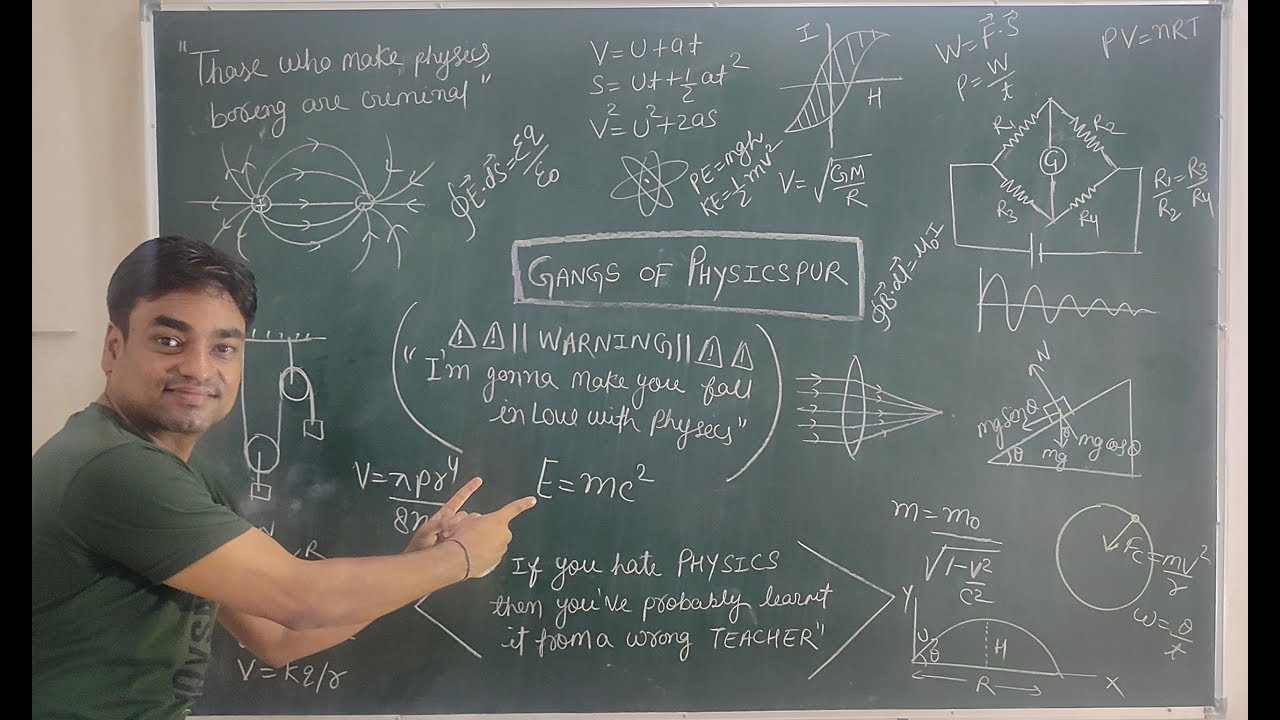 "Those who make physics
boring are criminal"
V=U+at
S=Ut+½at²
V²=U²+2as
I
H
W=F⃗·S⃗
P=W/t
PV=nRT
∮E⃗·dS⃗=Σq/ε₀
PE=mgh
KE=½mV²
V=√GM/R
R₁
R₂
G
R₃
R₄
R₁/R₂=R₃/R₄
GANGS OF PHYSICSPUR
∮B⃗·dl⃗=μ₀I
⚠⚠||WARNING||⚠⚠
"I'm gonna make you fall
in Love with Physics"
N
mg sinθ
mg cosθ
mg
θ
θ
V=πpr⁴
8η
E=mc²
R
If you hate PHYSICS
then you've probably learnt
it from a wrong TEACHER"
V=kq/r
m=m₀
√1-v²/c²
Fc=mv²/r
ω=θ/t
Y
U
θ
H
R
X